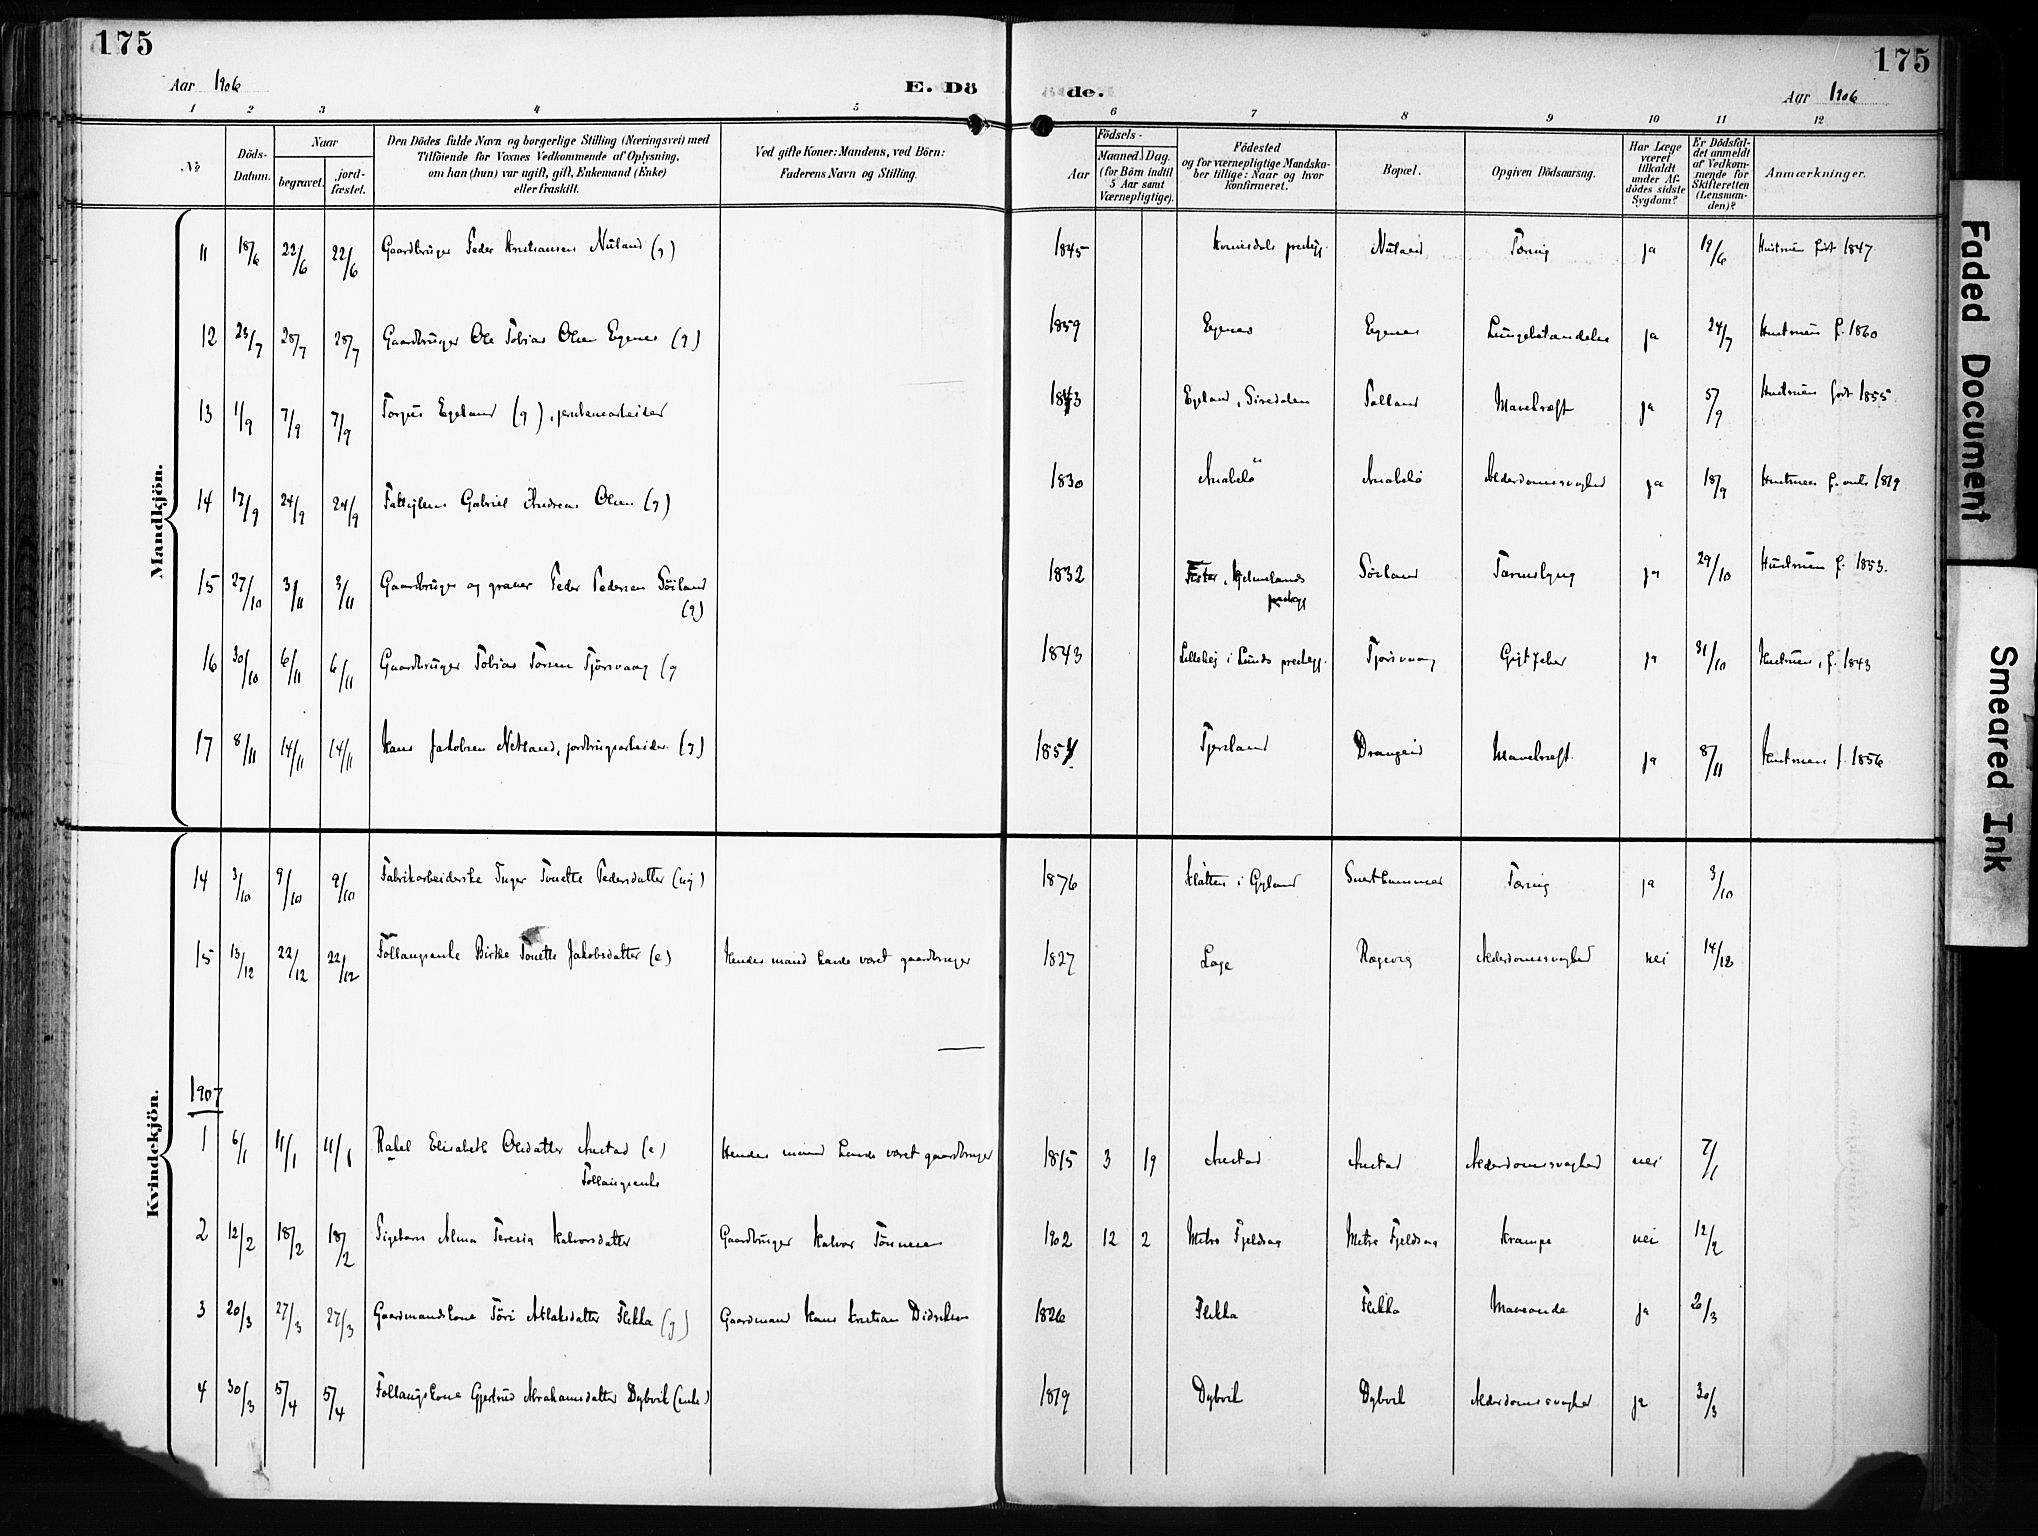 175
175
Aar 1906
E. Dö
de.
Aar 1906
1 2 3 4 5 6 7 8 9 10 11 12
No
Döds-Datum.
Naar
begravet.
jord-fæstet.
Den Dödes fulde Navn og borgerlige Stilling (Næringsvei) med
Tilföiende for Voxnes Vedkommende af Oplysning,
om han (hun) var ugift, gift, Enkemand (Enke)
eller fraskilt.
Ved gifte Koner: Mandens, ved Börn:
Faderens Navn og Stilling.
Födsels-
Aar
Maaned. Dag.
(for Börn indtil
5 Aar samt
Værnepligtige).
Födested
og for værnepligtige Mandska-
ber tillige: Naar og hvor
konfirmeret.
Bopæl.
Opgiven Dödsaarsag.
Har Læge
været
tilkaldt
under Af-
dödes sidste
Sygdom?
Er Dödsfal-
det anmeldt
af Vedkom-
mende for
Skifteretten
(Lensman-
den)?
Anmærkninger.
Mandkjön.
11 18/6 22/6 22/6 Gaardbruger Peder Kristiansen Nuland (g) 1845 Nuland Tæring ja 19/6 Hustruen født 1847
12 23/7 28/7 28/7 Gaardbruger Ole Tobias Olsen Egenes (g) 1859 Egenes Egenes Lungebetændelse ja 24/7 Hustruen f. 1860
13 1/9 7/9 7/9 Egeland (g), jernbanearbeider 1843 Egeland, Siredalen Salland Mavekræft ja 5/9 Hustruen født 1855
14 17/9 24/9 24/9 Gabriel Andreas Olsen (g) 1830 Anabelö Anabelö Alderdomssvaghed ja 18/9 Hustruen f. 1819
15 27/10 3/11 3/11 Gaardbruger og graver Peder Pedersen Söiland
(g) 1832 Söiland Tarmslyng ja 29/10 Hustruen f. 1853.
16 30/10 6/11 6/11 Gaardbruger Tobias Torsen Tjørsvaag (g 1843 i Lunds prestegj. Tjørsvaag Gigtfeber ja 31/10 Hustruen, f. 1843
17 8/11 14/11 14/11 Hans Jakobsen Netland, jordbrugsarbeider. (g) Tjersland Drangeid Mavekræft. ja 8/11 Hustruen f. 1856
Kvindekjön.
14 3/10 9/10 9/10 Fabrikarbeiderske Inger Tonette Pedersdatter (ug) 1876 Slåtten i Gyland Svarthummer Tæring ja 3/10
15 13/12 22/12 22/12 Follaugsenke Birthe Tonette Jakobsdatter (e) Hendes mand havde været gaardbruger 1827 Loge Rægevig Alderdomssvaghed nei 14/12
1907
1 6/1 11/1 11/1 Rakel Elisabeth Olsdatter Austad (e)
Follaugsenke Hendes mand havde været gaardbruger 1815 3 19 Austad Austad Alderdomssvaghed nei 7/1
2 12/2 18/2 18/2 Pigebarn Alma Teresia Halvorsdatter Gaardbruger Halvor Tønnesen 1902 12 2 Midtre Fjeldsaa Midtre Fjeldsaa Krampe nei 12/2
3 20/3 27/3 27/3 Gaardmandskone Töri Aslaksdatter Flikka (g) Gaardmand Hans Kristian Didriksen 1826 Flikka Flikka Maveonde ja 20/3
4 30/3 5/4 5/4 Follaugskone Gjertrud Abrahamsdatter Dybvik (enke) 1819 Dybvik Dybvik Alderdomssvaghed ja 30/3
Faded Document
Smeared Ink